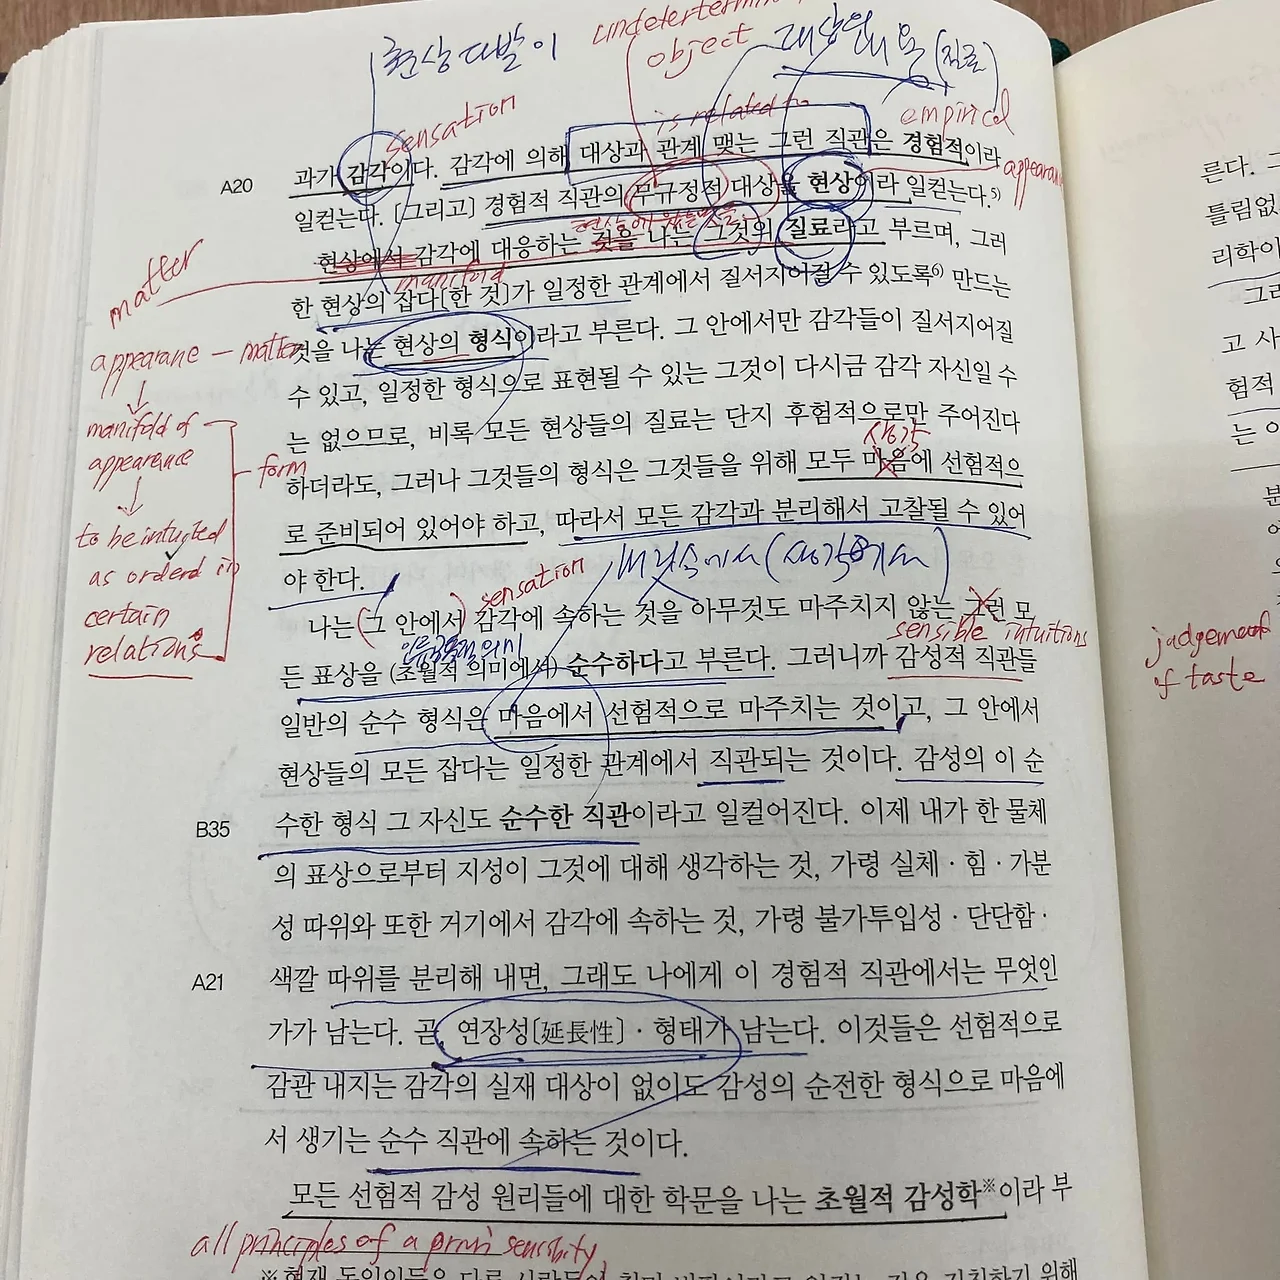 현상 다발이
object
대상의 내용 (질료)
sensation
is related to
empirical
과가 감각이다. 감각에 의해 대상과 관계 맺는 그런 직관은 경험적이라
A20
일컫는다. [그리고] 경험적 직관의 무규정적 대상을 현상이라 일컫는다.5)
appearance
matter
현상에서 감각에 대응하는 것을 나는 그것의 질료라고 부르며, 그러
manifold
한 현상의 잡다[한 것]가 일정한 관계에서 질서지어질 수 있도록6) 만드는
것을 나는 현상의 형식이라고 부른다. 그 안에서만 감각들이 질서지어질
appearane — matter
수 있고, 일정한 형식으로 표현될 수 있는 그것이 다시금 감각 자신일 수
manifold of
는 없으므로, 비록 모든 현상들의 질료는 단지 후험적으로만 주어진다
appearance
form
생각
하더라도, 그러나 그것들의 형식은 그것들을 위해 모두 마음에 선험적으
로 준비되어 있어야 하고, 따라서 모든 감각과 분리해서 고찰될 수 있어
to be intuited
as orderd in
certain
relations
야 한다.
sensation
머릿속에서 (생각에서)
나는 (그 안에서) 감각에 속하는 것을 아무것도 마주치지 않는 그런 모
sensible intuitions
든 표상을 (초월적 의미에서) 순수하다고 부른다. 그러니까 감성적 직관들
judgement
of taste
일반의 순수 형식은 마음에서 선험적으로 마주치는 것이고, 그 안에서
현상들의 모든 잡다는 일정한 관계에서 직관되는 것이다. 감성의 이 순
B35
수한 형식 그 자신도 순수한 직관이라고 일컬어진다. 이제 내가 한 물체
의 표상으로부터 지성이 그것에 대해 생각하는 것, 가령 실체·힘·가분
성 따위와 또한 거기에서 감각에 속하는 것, 가령 불가투입성·단단함·
A21
색깔 따위를 분리해 내면, 그래도 나에게 이 경험적 직관에서는 무엇인
가가 남는다. 곧, 연장성[延長性]·형태가 남는다. 이것들은 선험적으로
감관 내지는 감각의 실재 대상이 없이도 감성의 순전한 형식으로 마음에
서 생기는 순수 직관에 속하는 것이다.
모든 선험적 감성 원리들에 대한 학문을 나는 초월적 감성학※이라 부
all principles of a priori sensibity
른다. 그
틀림없
리학이
고 사
험적
는 이